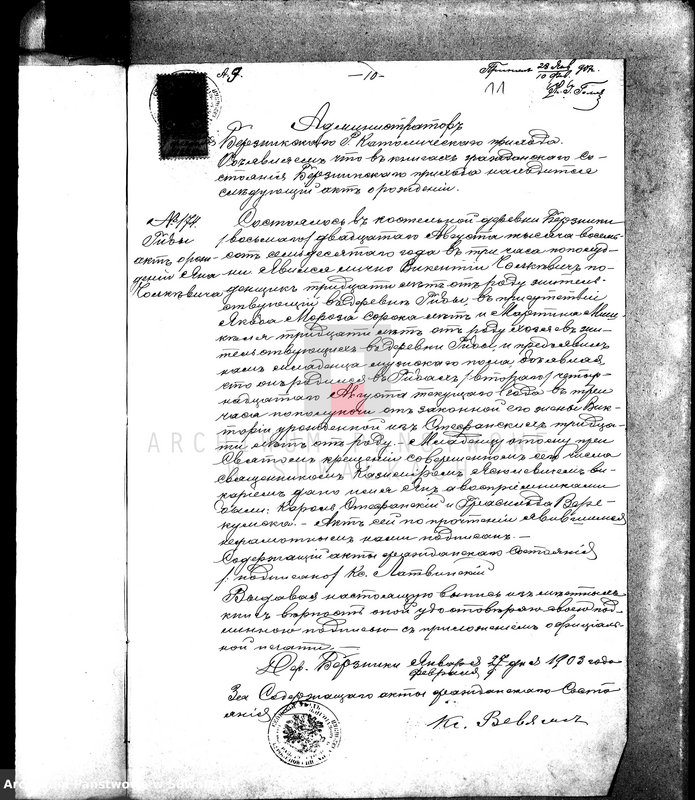 № 9.
— 10 —
28 Янв
10 Фев. 902.
11
Администраторъ
Березникскаго Р. Католическаго прихода.
Объявляемъ что въ книгахъ гражданскаго со-
стоянія Березникскаго прихода находится
слѣдующій актъ о рожденіи.
№ 174.
Гибы
актъ о рож-
деніи Яна
Состоялось въ костельной деревни Березники
/восьмаго/ двадцатаго Августа тысяча восемь
сотъ семидесятаго года въ три часа пополуд-
ни Явился лично Викентій по-
денщикъ тридцати лѣтъ отъ роду житель-
ствующій въ деревнѣ Гибы, въ присутствіи
Якова Мороза сорока лѣтъ и Мартина
тридцати лѣтъ отъ роду Хозяевъ жи-
тельствующихъ въ деревни Гибы и предъявилъ
намъ младенца мужскаго пола, объявляя
что онъ родился въ Гибахъ /втораго/ четыр-
надцатаго Августа текущаго года въ три
часа пополуночи отъ законной его жены Вик-
торіи урожденной изъ тридца-
ти лѣтъ отъ роду. Младенцу этому при
Святомъ крещеніи совершенномъ сего числа
священникомъ Казимиромъ ви-
каріемъ дано имя Янъ а воспріемниками
были: Кароль и
Актъ сей по прочтеніи явившимся
неграмотнымъ нами подписанъ. —
Содержащій акты гражданскаго состоянія
/: подписано/ Кс. Латвинскій
Выдавая настоящую выпись изъ мѣстныхъ
книгъ вѣрность оной удостовѣряю своею под-
линною подписью съ приложеніемъ оффиціаль-
ной печати. —
Дер. Березники Января 27 дня 1903 года
Февраля 9
За Содержащаго акты гражданскаго Состо
янія
Кс.
ARCHIWUM